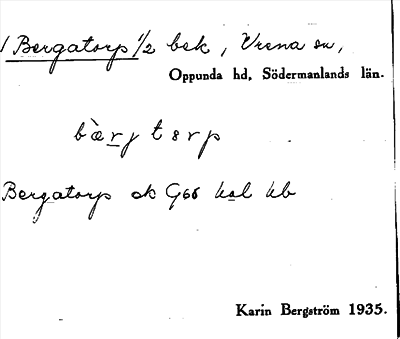 / Bergatorp 1/2 bek, Vrena sn,
Oppunda hd, Södermanlands län.
bæ̀rjtsrp
Bergatorp ek G66 kal kb
Karin Bergström 1935.